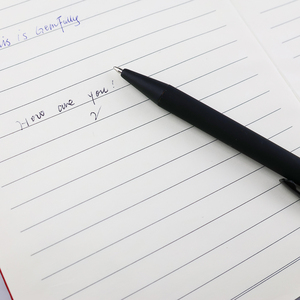 is Gemfully
How are you!